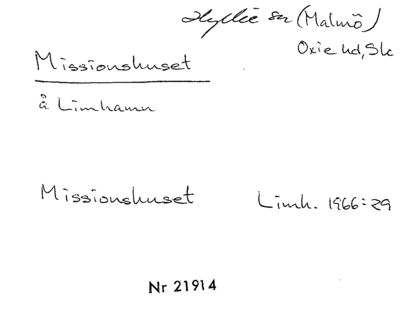 Hyllie sn (Malmö)
Oxie hd, Sk
Missionshuset
å Limhamn
Missionshuset Limh. 1966:29
Nr 21914